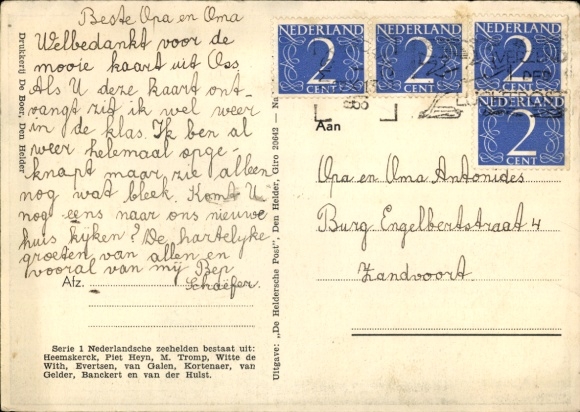 Beste Opa en Oma
Welbedankt voor de
mooie kaart uit Oss
Als U deze kaart ont-
vangt zit ik wel weer
in de klas. Ik ben al
weer helemaal opge-
knapt maar zie alleen
nog wat bleek. Komt U
nog eens naar ons nieuwe
huis kijken? De hartelyke
groeten van allen en
vooral van mij Bep
Schaëfer.
Afz.
Serie 1 Nederlandsche zeehelden bestaat uit:
Heemskerck, Piet Heyn, M. Tromp, Witte de
With, Evertsen, van Galen, Kortenaer, van
Gelder, Banckert en van der Hulst.
Drukkerij De Boer, Den Helder
Uitgave: „De Heldersche Post", Den Helder, Giro 20642 — Na
NEDERLAND
2
CENT
NEDERLAND
2
CENT
NEDERLAND
2
NEDERLAND
2
CENT
Aan
Opa en Oma Antonides
Burg. Engelbertstraat 4
Zandvoort.